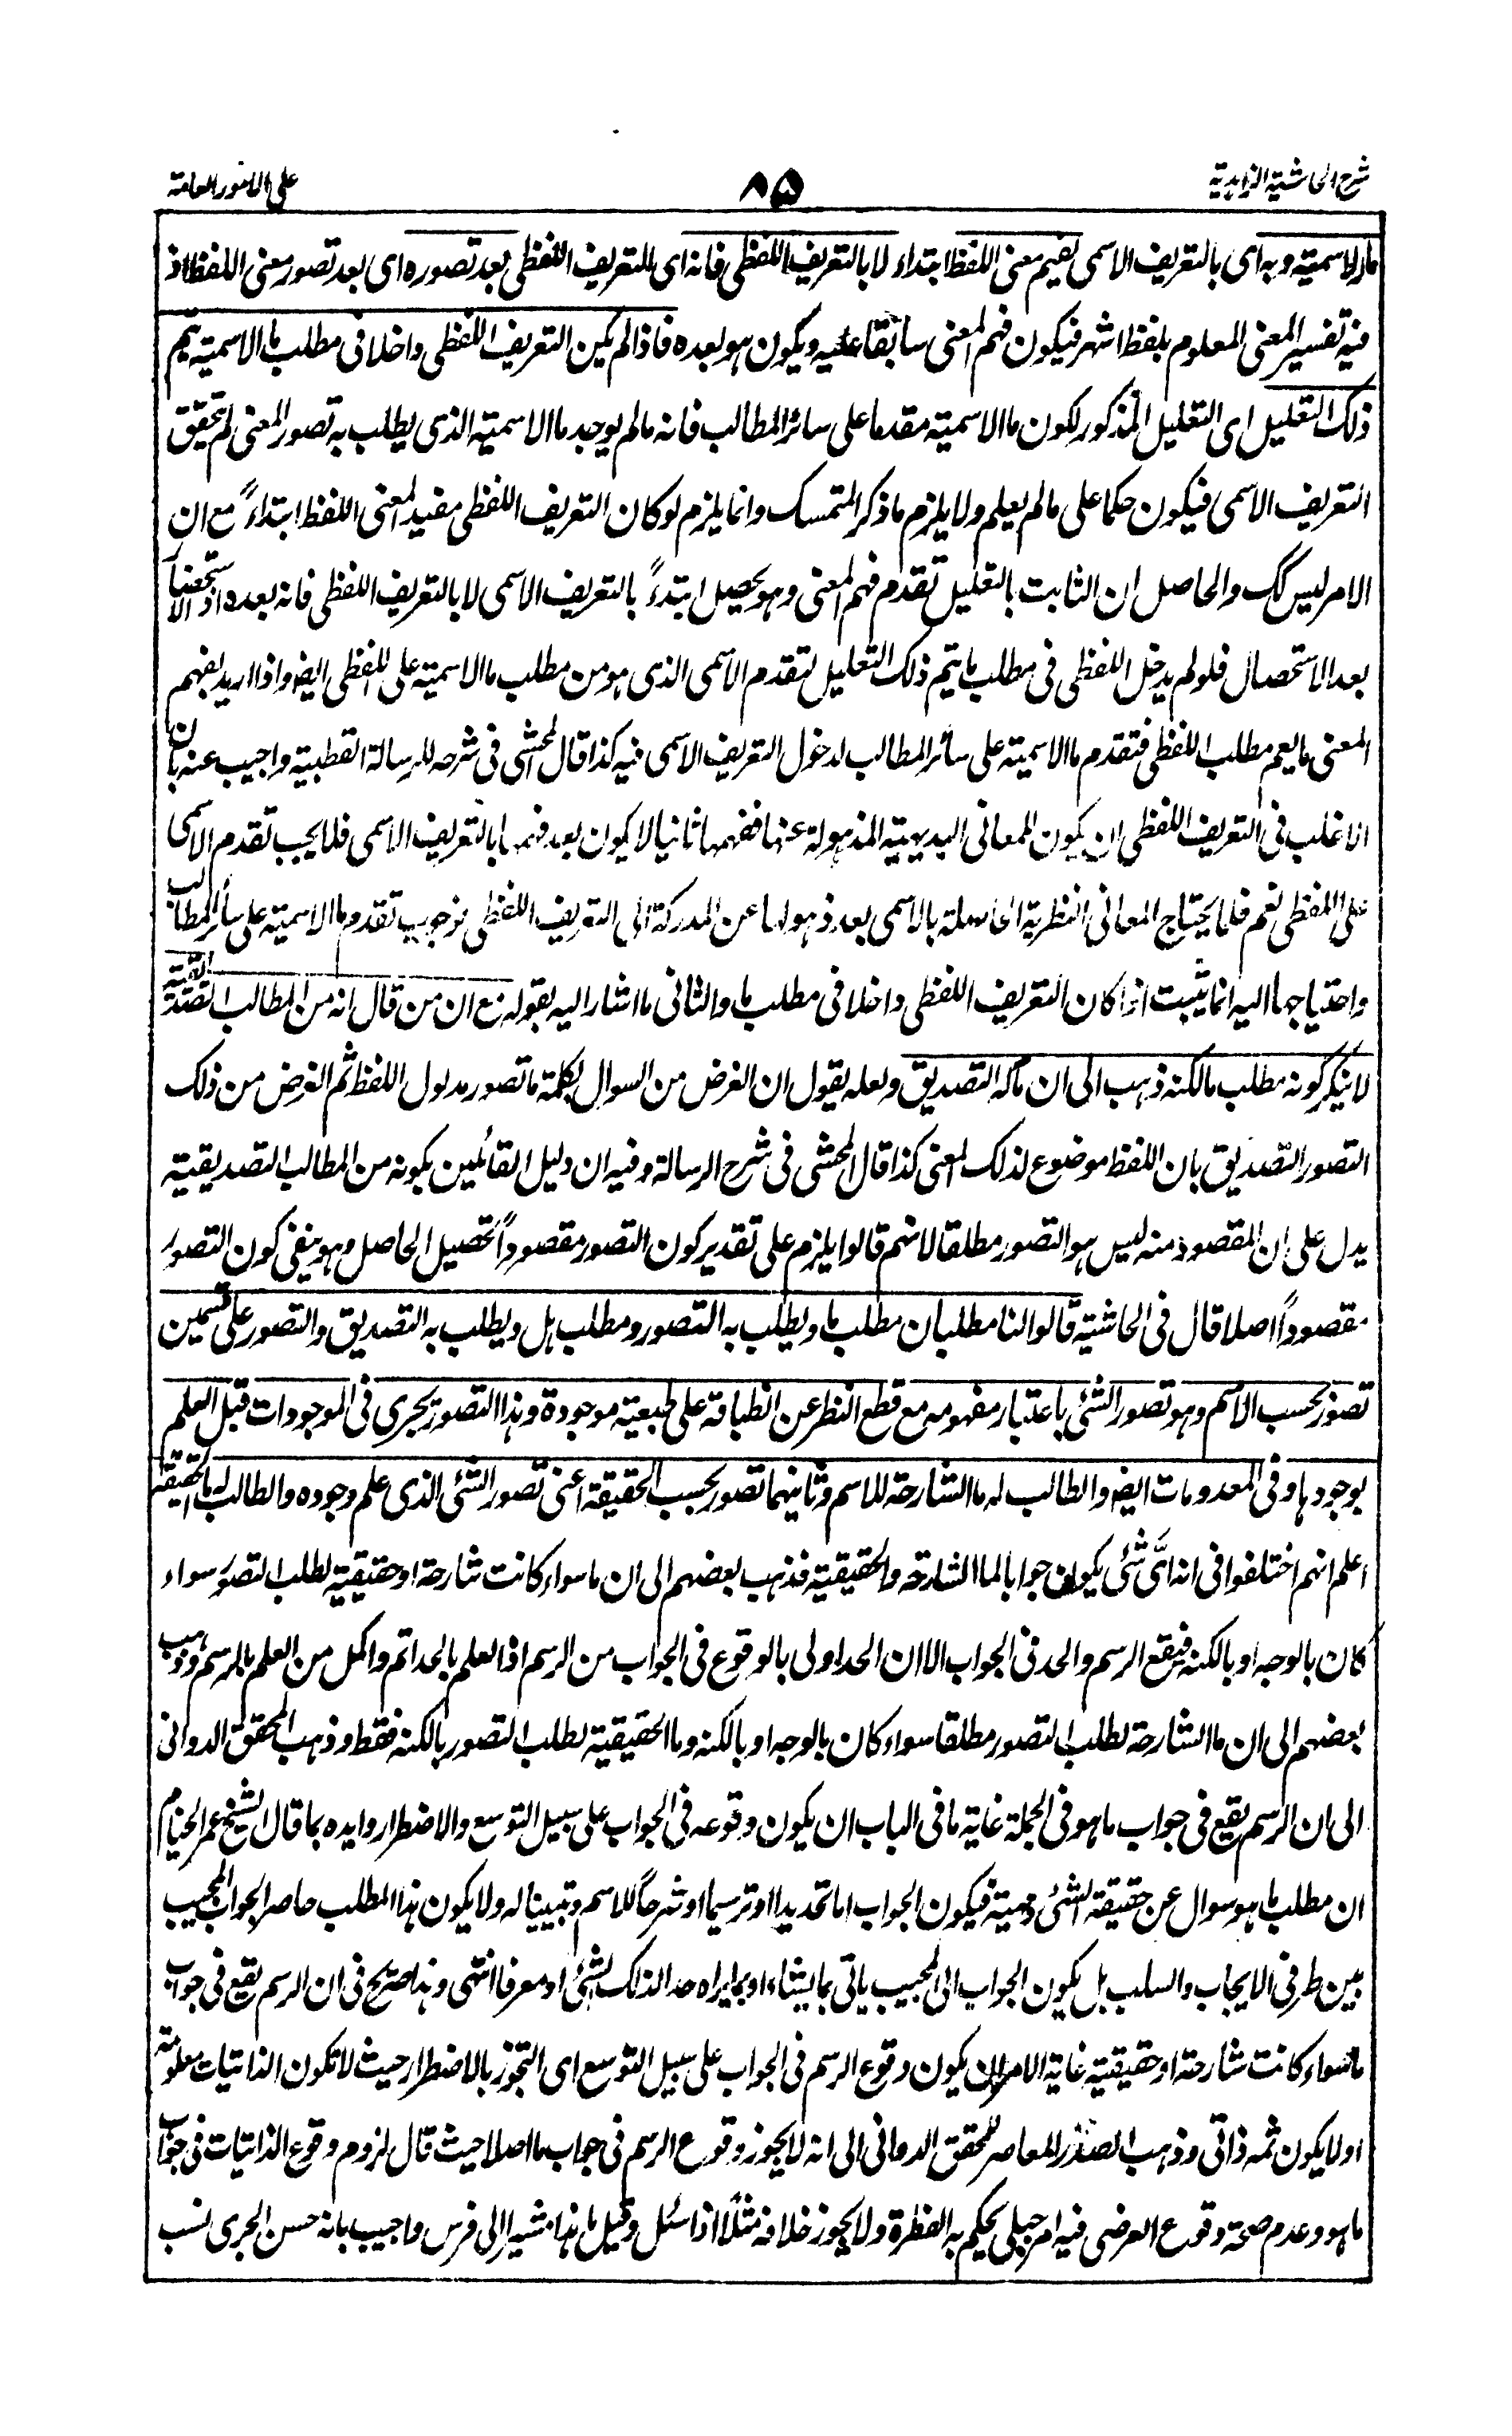 شرح الحاشية الزاهدية
٨٥
على الامور العامة
ما الاسمية وبه اى بالتعريف الاسمى يفهم معنى اللفظ ابتداء لا بالتعريف اللفظى فانه اى التعريف اللفظى بعد تصوره اى بعد تصور معنى اللفظ اذ
فيه تفسير المعنى المعلوم بلفظ اشهر فيكون فهم المعنى سابقا عليه ويكون هو بعده فاذا لم يكن التعريف اللفظى داخلا فى مطلب ما الاسمية يتم
ذلك التعليل اى التعليل المذكور لكون ما الاسمية مقدما على سائر المطالب فانه مالم يوجد ما الاسمية الذى يطلب به تصور المعنى لم يتحقق
التعريف الاسمى فيكون حكما على مالم يعلم ولا يلزم ما ذكر المتمسك وانما يلزم لو كان التعريف اللفظى مفيد المعنى اللفظ ابتداءً مع ان
الامر ليس كك والحاصل ان الثابت بالتعليل تقدم فهم المعنى وهو يحصل ابتدءً بالتعريف الاسمى لا بالتعريف اللفظى فانه بعده اذ الاستحضار
بعد الاستحصال فلو لم يدخل اللفظى فى مطلب ما يتم ذلك التعليل لتقدم الاسمى الذى هو من مطلب ما الاسمية على اللفظى ايضا واذا اريد بفهم
المعنى ما يعم مطلب اللفظى فتقدم ما الاسمية على سائر المطالب لدخول التعريف الاسمى فيه كذا قال المحشى فى شرحه للرسالة القطبية واجيب عنه بان
الاغلب فى التعريف اللفظى ان يكون المعانى البديهية المذهولة عنها ففهمها ثانيا لا يكون بعد فهمها بالتعريف الاسمى فلا يجب تقدم الاسمى
على اللفظى نعم قلما يحتاج المعانى النظرية الحاصلة بالاسمى بعد ذهولها عن المدركة الى التعريف اللفظى فوجوب تقدم ما الاسمية على سائر المطالب
واحتياجها اليه انما يثبت اذا كان التعريف اللفظى داخلا فى مطلب ما والثانى ما اشار اليه بقوله مع ان من قال انه من المطالب التصديقية
لا ينكر كونه مطلب ما لكنه ذهب الى ان مآله التصديق ولعله يقول ان الغرض من السوال بكلمة ما تصور مدلول اللفظ ثم الغرض من ذلك
التصور التصديق بان اللفظ موضوع لذلك المعنى كذا قال المحشى فى شرح الرسالة وفيه ان دليل القائلين بكونه من المطالب التصديقية
يدل على ان المقصود منه ليس هو التصور مطلقا لانهم قالوا يلزم على تقدير كون التصور مقصوداً تحصيل الحاصل وهو ينفى كون التصور
مقصوداً اصلا قال فى الحاشية قالوا لنا مطلبان مطلب ما ويطلب به التصور ومطلب هل ويطلب به التصديق والتصور على قسمين
تصور بحسب الاسم وهو تصور الشئ باعتبار مفهومه مع قطع النظر عن انطباقه على طبيعية موجودة وهذا التصور يجرى فى الموجودات قبل العلم
بوجودها وفى المعدومات ايضا والطالب له ما الشارحة للاسم وثانيهما تصور بحسب الحقيقة اعنى تصور الشئ الذى علم وجوده والطالب له ما الحقيقية
اعلم انهم اختلفوا فى انه اىّ شئ يكون جوابا لما الشارحة والحقيقية فذهب بعضهم الى ان ما سواء كانت شارحة او حقيقية لطلب التصور سواء
كان بالوجه او بالكنه فيقع الرسم والحد فى الجواب الا ان الحد اولى بالوقوع فى الجواب من الرسم اذ العلم بالحد اتم واكمل من العلم بالرسم وذهب
بعضهم الى ان ما الشارحة لطلب التصور مطلقا سواء كان بالوجه او بالكنه وما الحقيقية لطلب التصور بالكنه فقط وذهب المحقق الدوانى
الى ان الرسم يقع فى جواب ما هو فى الجملة غاية ما فى الباب ان يكون وقوعه فى الجواب على سبيل التوسع والاضطرار وايده بما قال الشيخ عمر الخيام
ان مطلب ما هو سوال عن حقيقة الشئ ومهيته فيكون الجواب اما تحديدا او ترسيما او شرحاً للاسم وتبيينا له ولا يكون هذا المطلب حاصر الجواب المجيب
بين طرفى الايجاب والسلب بل يكون الجواب الى المجيب ياتى بما يشاء او بما يراه حدا لذلك الشئ او معرفا انتهى وهذا صريح فى ان الرسم يقع فى جواب
ما سواء كانت شارحة او حقيقية غاية الامر ان يكون وقوع الرسم فى الجواب على سبيل التوسع اى التجوز بالاضطرار حيث لا تكون الذاتيات معلومة
او لا يكون ثمه ذاتى وذهب الصدر المعاصر للمحقق الدوانى الى انه لا يجوز وقوع الرسم فى جواب ما اصلا حيث قال لزوم وقوع الذاتيات فى جواب
ما هو وعدم صحة وقوع العرضى فيه امر جبلى يحكم به الفطرة ولا يجوز خلافه مثلا اذا سئل وقيل ما هذا مشيرا الى فرس واجيب بانه حسن الجرى نسب